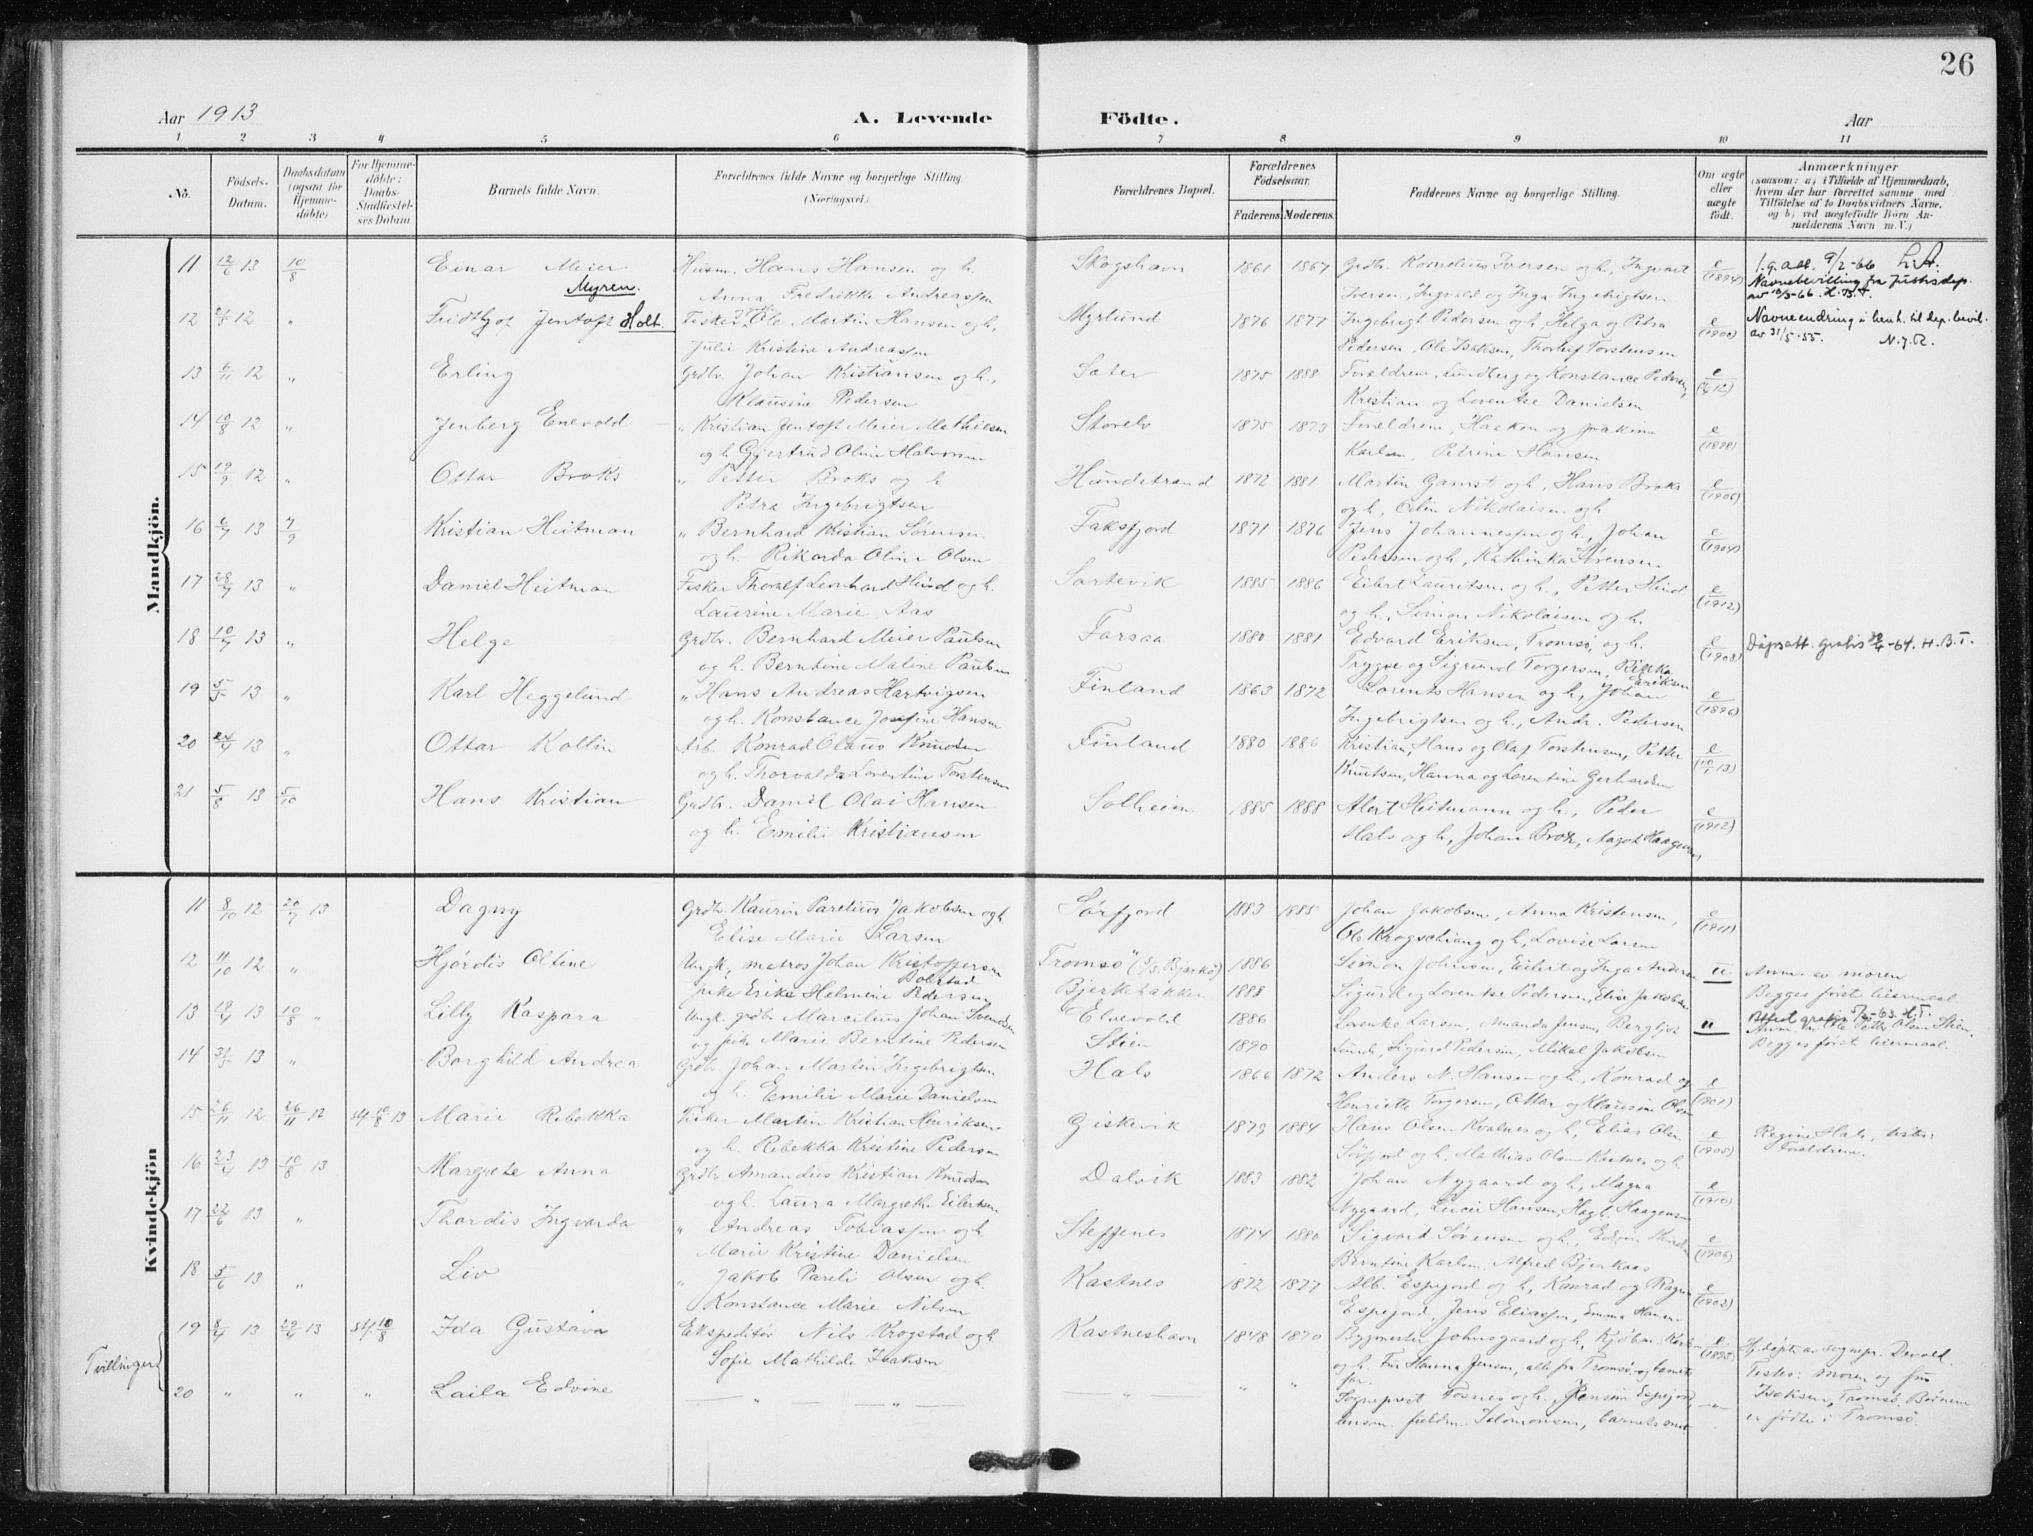 26
Aar 1913 A. Levende Födte. Aar
1 2 3 4 5 6 7 8 9 10 11
No. Födsels-Datum. Daabsdatum (ogsaa for Hjemme-döbte) For Hjemme-döbte: Daabs-Stadfæstelses Datum Barnets fulde Navn. Forældrenes fulde Navne og borgerlige Stilling (Næringsvei.) Forældrenes Bopæl. Forældrenes Födselsaar. Faderens. Moderens. Faddernes Navne og borgerlige Stilling. Om ægte eller uægte födt. Anmærkninger (saasom: a) i Tilfælde af Hjemmedaab, hvem der har forrettet samme, med Tilföielse af to Daabsvidners Navne, og b) ved uægtefödte Börn Anmelderens Navn m. V.)
Mandkjön.
11 12/6 13 10/8 Einar Meier Husm. Hans Hansen og h. Skogshavn 1861 1867 Grdbr. Kornelius Iversen og h, Ingvart e (1894) 9/2-66
Myren. Anna Fredrikke Andreassen Iversen, Ingvald og Inga Ingebrigtsen Navnebevilling fra Justisdep. av 10/3-66. H.B.T.
12 12 " Fridtjof Jentoft Holt Fisker Ole Martin Hansen og h, Myrlund 1876 1877 Ingebrigt Pedersen og h, Helga og Petra e (1900) Navneendring i henh. til dep. bevil.
Julie Kristine Andreassen Pedersen, Ole Isaksen, Thorleif Torstensen av 31/5-55. N.J.R.
13 6/11 12 " Erling Grdbr. Johan Kristiansen og h., Sæter 1875 1888 Forældrene, Lundberg og Konstance Pedersen, e
Klausine Pedersen Kristian og Loventse Danielsen
14 10/8 12 " Jenberg Enevold " Kristian Jentoft Meier Mathisen Storelv 1875 1873 Forældrene, Haakon og Joakim e (1898)
og h Gjertrud Oline Halvorsen Karlsen, Petrine Hansen
15 19/9 12 " Ottar Broks " Petter Broks og h Hundstrand 1872 1881 Martin Gamst og h, Hans Broks e (1906)
Petra Ingebrigtsen og h, Odin Nikolaisen og h
16 6/7 13 7/9 Kristian Heitman " Bernhard Kristian Sørensen Faksfjord 1871 1876 Jens Johannessen og h., Johan e (1904)
og h. Rikarda Oline Olsen Pedersen og h, Kathinka Sørensen
17 28/7 13 " Daniel Heitman Fisker Thoralf Leonhard Hind og h. Sortevik 1885 1886 Eilert Lauritsen og h., Petter Hind e (1912)
Laurine Marie Aas og h, Simon Nikolaisen og h.
18 10/7 13 " Helge Grdbr. Bernhard Meier Paulsen Forsaa 1880 1881 Edvard Eriksen, Tromsø, og h. e (1908) Dåpsatt. gratis -64. H.B.T.
og h. Berntine Matine Paulsen Trygve og Sigrund Torgersen, Rikka Eriksen
19 5/5 13 " Karl Heggelund " Hans Andreas Hartvigsen Finland 1863 1872 Lorents Hansen og h, Johan e (1896)
og h. Konstance Josefine Hansen Ingebrigtsen og h., Andr. Pedersen
20 24/4 13 " Ottar Kollin Arb. Konrad Olaus Knudsen Finland 1880 1886 Kristian, Hans og Olaf Torstensen, Petter e
og h. Thorvalda Loventine Torstensen Knutsen, Hanna og Lorentine Gerhardsen
21 5/8 13 5/10 Hans Kristian Grdbr. Daniel Olai Hansen Solheim 1885 1888 Alert Heitmann og h., Peder e (1912)
og h. Emilie Kristiansen Hals og h, Johan Brox, Aagot Haagensen
Kvindekjön
11 8/10 12 20/7 13 Dagny Grdbr. Kaurin Parelius Jakobsen og h Sørfjord 1883 1885 Johan Jakobsen, Anna Kristensen, e (1911)
Elise Marie Larsen Ole Krogschiang og h, Lovise Larsen
12 11/10 12 " Hjørdis Oltine Ungk., matros Johan Kristoffersen Tromsø (S/S. Bjarkø) 1886 Simon Johnsen, Eilert og Inga Andersen u Anm. av moren
Dolstad
pike Erika Helmine Pedersen Bjerkebakken 1888 Sigurd og Loventse Pedersen, Elise Jakobsen Begges først leiermaal.
13 19/4 13 10/8 " Lilly Kaspara Ungk. grdbr. Marcilius Johan Svendsen Elvevold 1886 Lorentse Larsen, Amanda Jensen, Bergljot u Attest gratis -63. H.T.
og pike Marie Berntine Pedersen Stien 1890 Lund, Sigurd Pedersen, Mikal Jakobsen Begges først leiermaal.
14 31/5 13 " Borghild Andrea Grdbr. Johan Marten Ingebrigtsen Hals 1866 1872 Anders N. Hansen og h., Konrad og e (1901)
og h. Emilie Marie Danielsen Henriette Torgersen, Ottar og Klausine Olsen
15 26/11 12 26/11 12 stf. 10/8 13 Marie Rebekka Fisker Marten Kristian Henriksen Giskevik 1879 1884 Hans Olsen Kvalnes og h, Elias Olsen e (1905) Regine Hals, testes:
og h. Rebekka Kristine Pedersen Sørfjord og h. Mathias Olsen Kastnes og h. Forældrene.
16 23/4 13 10/8 13 Margrete Anna Grdbr Amandus Kristian Knudsen Dalvik 1883 1882 Johan Nygaard og h, Magna e (1910)
og h. Laura Margrethe Eilertsen Nygaard, Lucie Hansen, Hagb. Haagensen
17 22/6 13 " Thordis Ingvarda " Andreas Tobiassen og h. Steffenes 1874 1880 Sigvard Sørensen og h, Edvin e (1906)
Marie Kristine Danielsen Berntine Karlsen, Alfred Bjerkaas
18 5/6 13 " Liv " Jakob Pareli Olsen og h. Kastnes 1872 1877 Alb. Espejord og h, Konrad og Ragna e (1902)
Konstance Marie Nilsen Espejord, Jens Eliassen, Emma Hansen
Tvillinger
19 8/4 13 29/6 13 stf. 10/8 Ida Gustava Ekspeditør Nils Krogstad og h Kastneshavn 1848 1870 Bygmester Johnsgaard og h, e (1895) Hj.døpt av sognepr. Devold.
Sofie Mathilde Isaksen og h. Frk. Hanna Jensen, alle fra Tromsø, og barnets far. Testes: moren og fru
20 " " " Laila Edvine — " — " — " " " Sogneprest Fosnes og h, Jensine Espejord, — " — Isaksen, Tromsø. Børnene
Salomonsen, barnets mor er fødte i Tromsø.